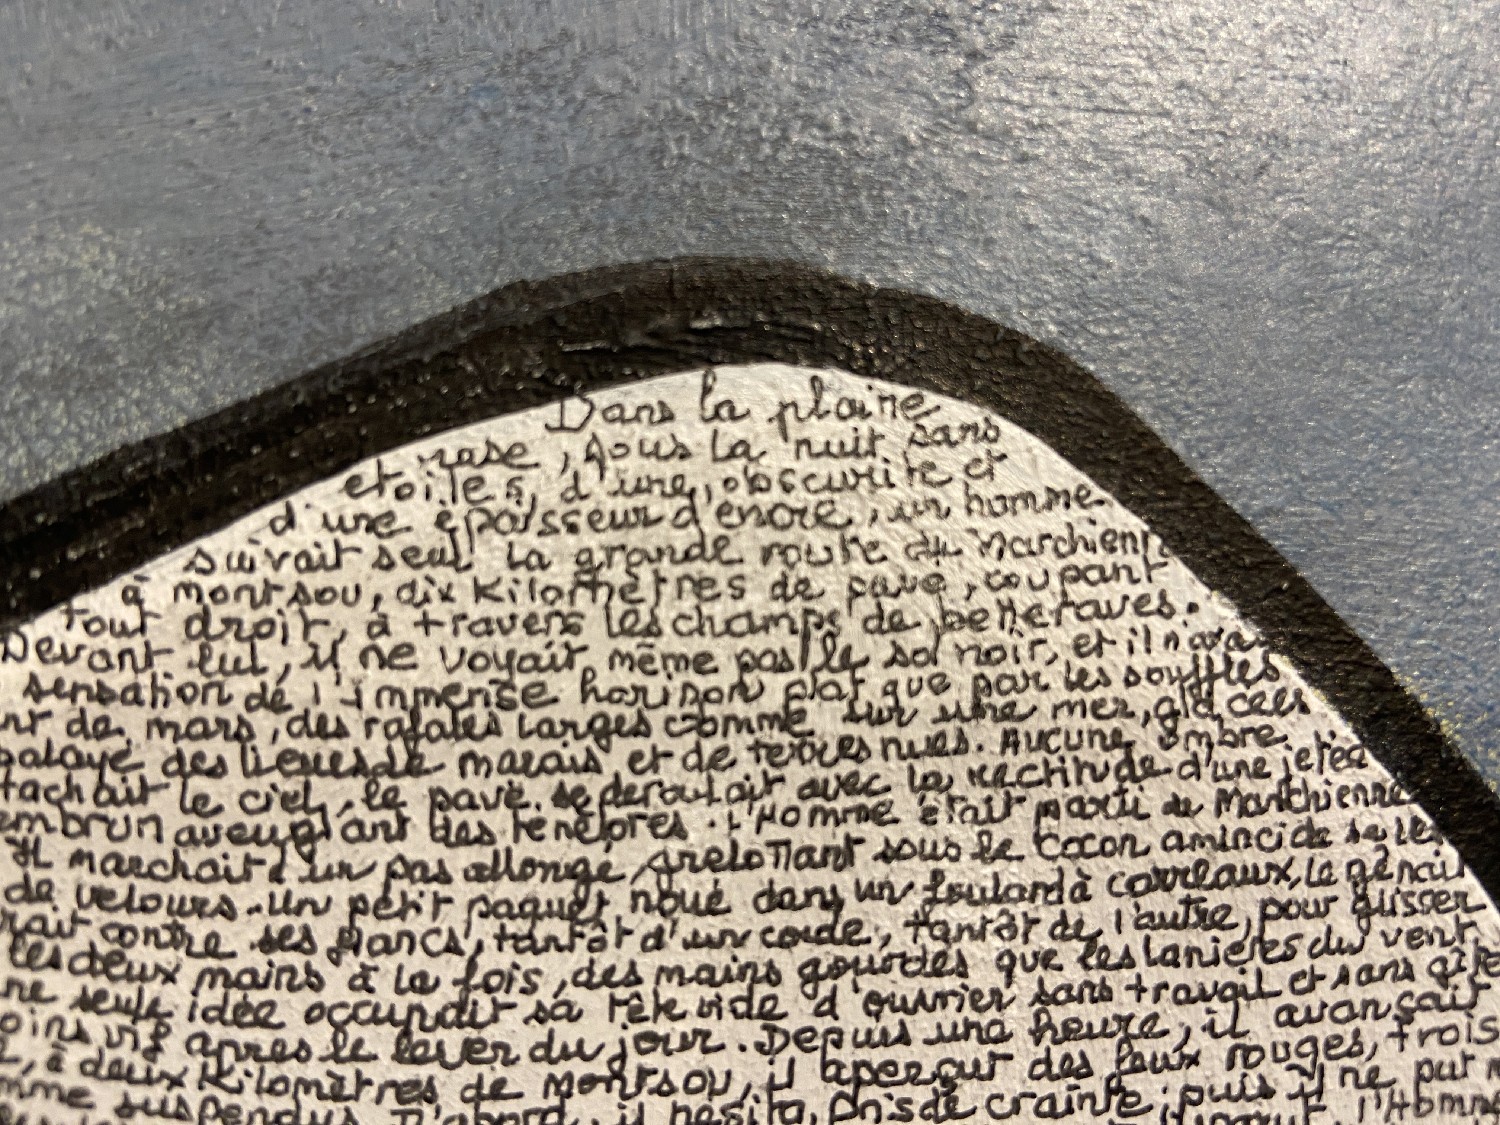 Dans la plaine
rase, sous la nuit sans
étoiles, d'une obscurité et
d'une épaisseur d'encre, un homme
suivait seul la grande route de Marchienn
à Montsou, dix kilomètres de pavé, coupant
tout droit, à travers les champs de betteraves.
Devant lui, il ne voyait même pas le sol noir, et il n'avai
sensation de l'immense horison plat que par les souffles
nt de mars, des rafales larges comme sur une mer, glacées
balayé des lieues de marais et de terres nues. Aucune ombre
tachait le ciel, le pavé se déroulait avec la rectitude d'une jetée
embrun aveuglant des ténèbres. L'Homme était parti de Marchienne
Il marchait d'un pas allongé, grelottant sous le cocon aminci de sa ve
de velours. Un petit paquet noué dans un foulard à carreaux, le gênait
rait contre ses flancs, tantôt d'un coude, tantôt de l'autre, pour glisser
les deux mains à la fois, des mains gourdes que les lanières du vent
ne seule idée occupait sa tête vide d'ouvrier sans travail et sans gîte
oins vif après le lever du jour. Depuis une heure, il avançait
, à deux kilomètres de Montsou, il aperçut des feux rouges, trois
mme suspendus. D'abord, il hésita, pris de crainte; puis il ne put
l'Homme